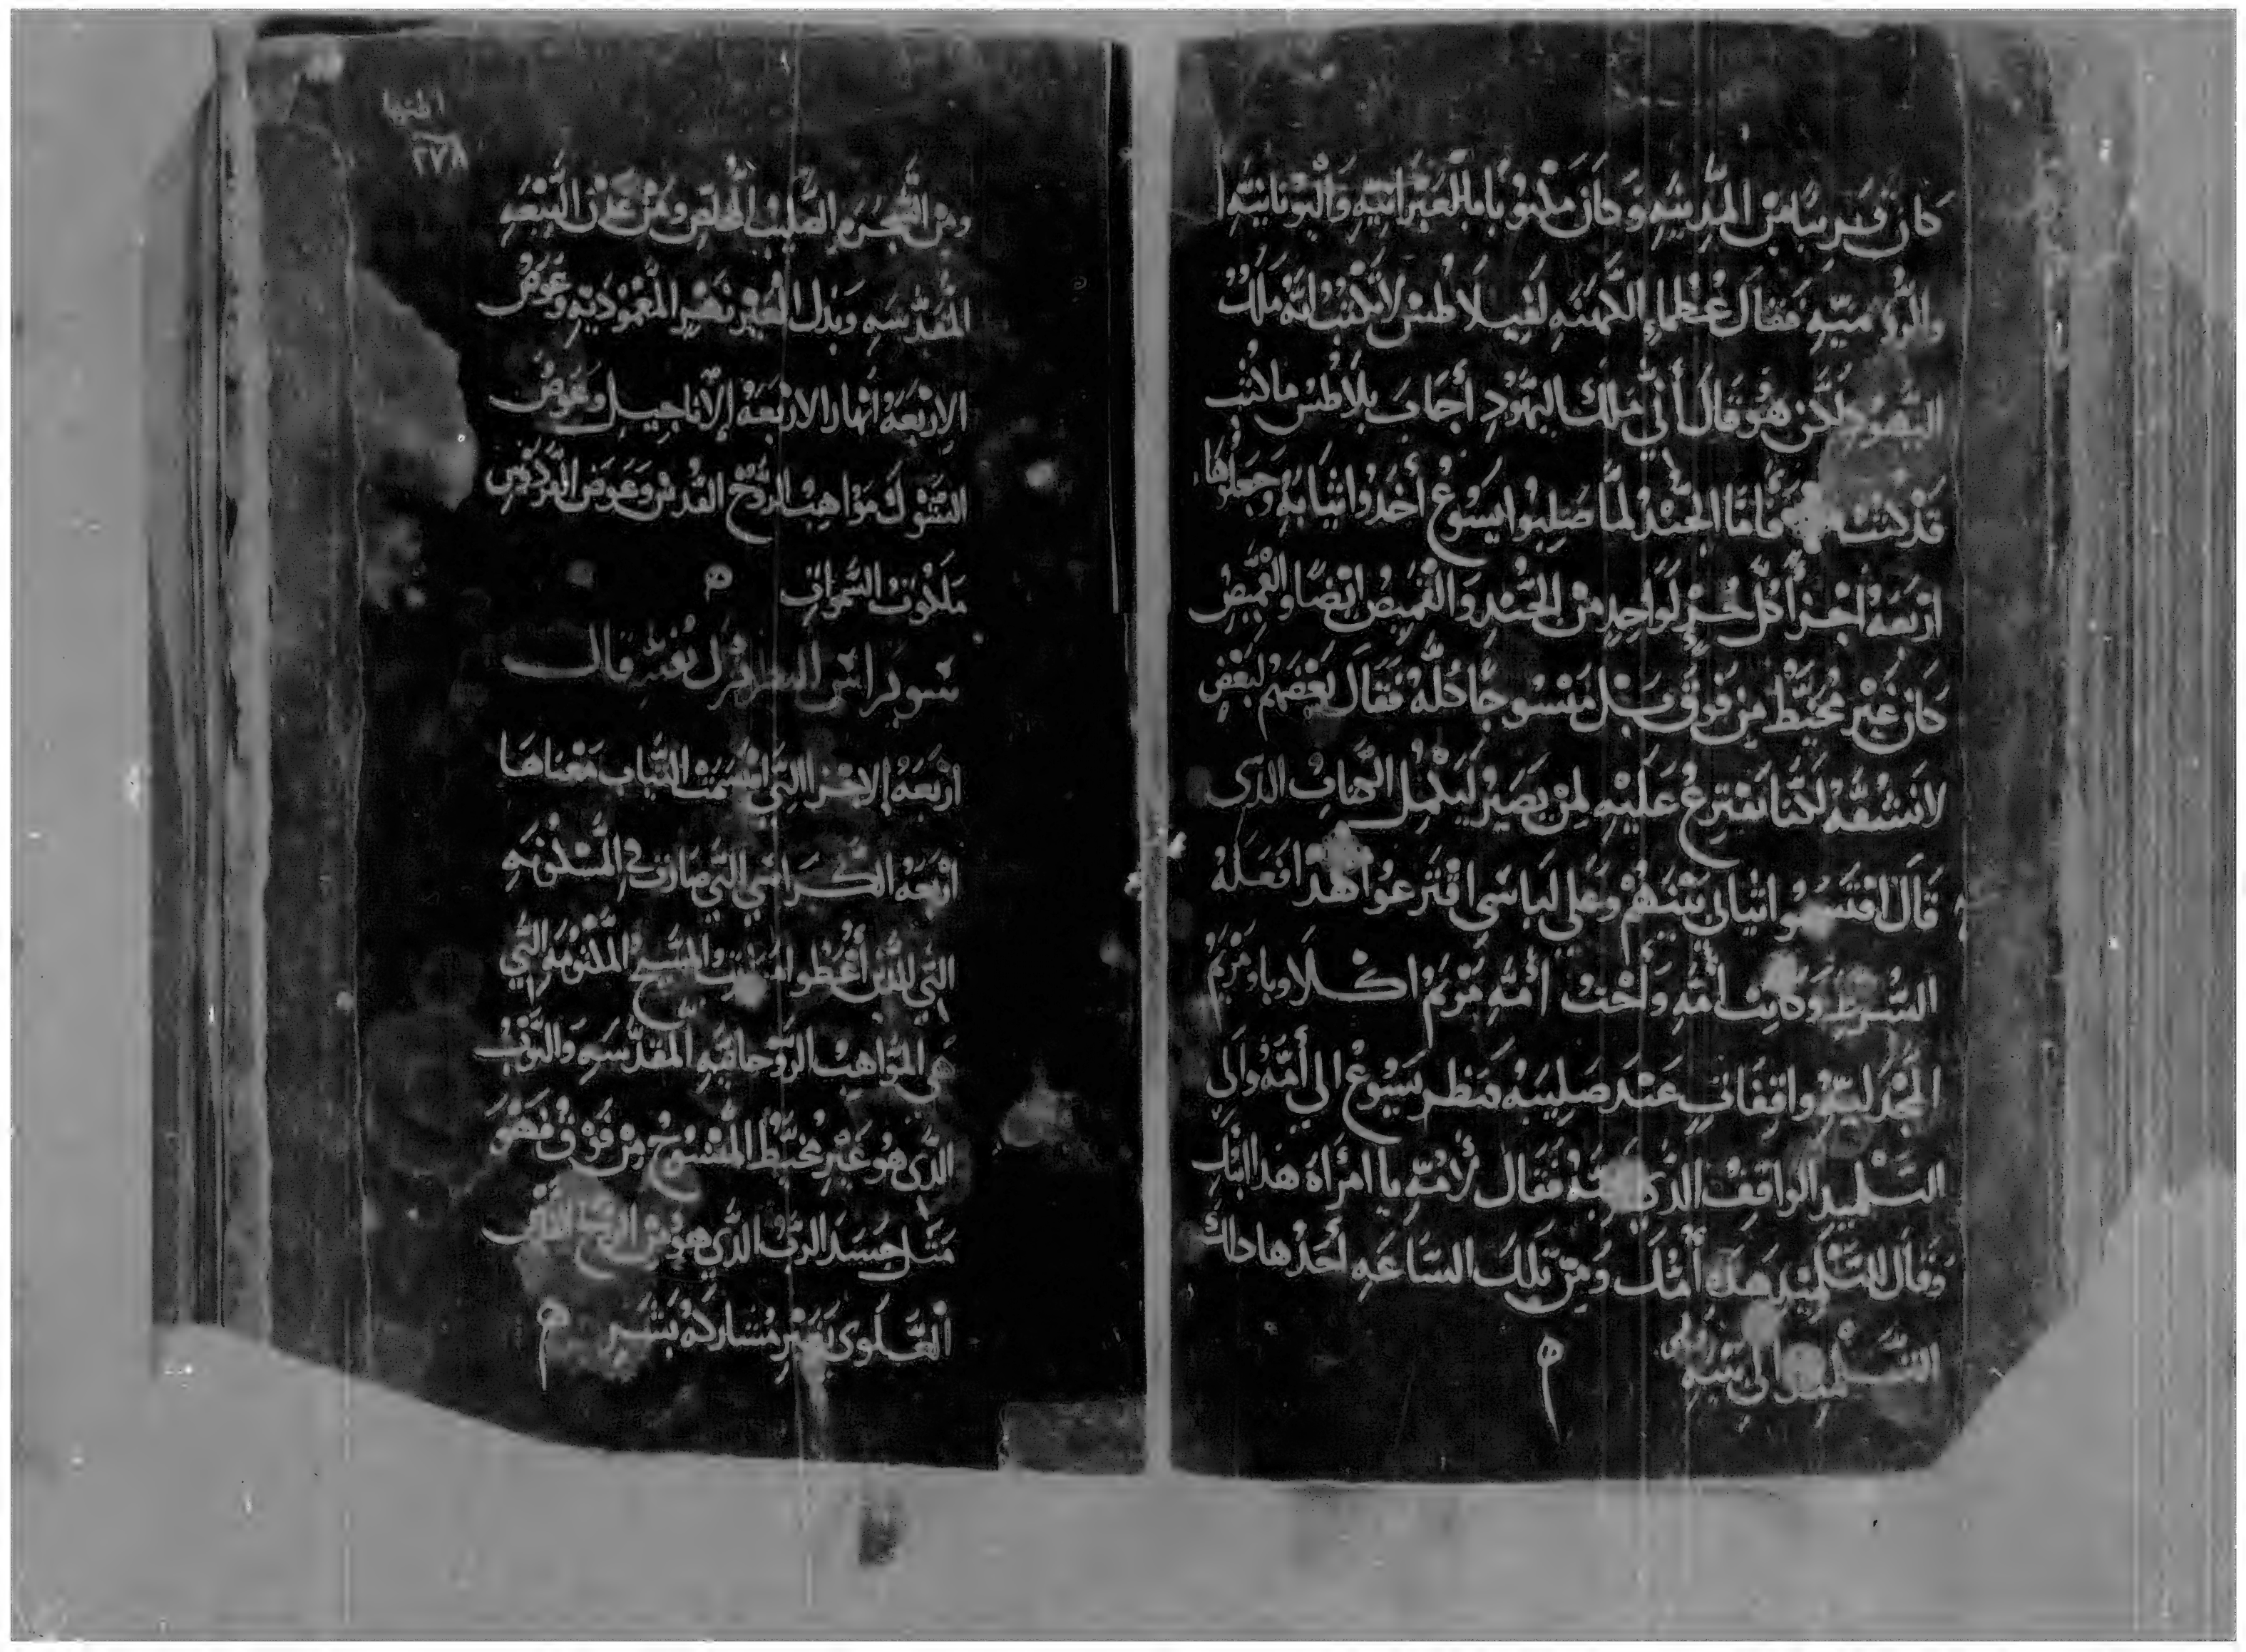 كان قريبا من المدينه وكان مكتوبا بالعبرانيه واليونانيه
والروميه فقال عظماء الكهنه لفيلاطس لا تكتب انه ملك
اليهود لكن هو قال أني ملك اليهود أجاب بلاطس ما كتب
قد كتب فأما الجند لما صلبوا يسوع أخذوا ثيابه وجعلوها
اربعه اجزأ كل جزء لواحد من الجند والقميص ايضا والقميص
كان غير مخيط من فوق بل منسوجا كله فقال بعضهم لبعض
لا نشقه لكننا نقترع عليه لمن يصير ليكمل الكتاب الذى
قال اقتسموا ثيابي بينهم وعلي لباسي اقترعوا هذا فعله
الشرط وكانت أمه وأخت أمه مريم اكلاوبا ومريم
المجدليه واقفات عند صليبه فنظر يسوع الي أمه والى
التلميد الواقف الذي يحبه فقال لأمه يا امرأه هذا ابنك
وقال للتلميد هذه أمك ومن تلك الساعه أخذها ذلك
التلميد الى بيته
٢٧٨
ومن الشجره الصليب المخلص وعوض عدن البيعه
المقدسه وبدل العبر نصير المعموديه وعوض
الاربعه أنهار الاربعه الأناجيل وعوض
الشوك مواهب الروح القدس وعوض الفردوس
ملكوت السموات
سويرس البطريرك قال
اربعه الاجزا التي اقسمت الثياب معناها
اربعه الكراسي التي صارت في المسكونه
التي للذين أعطوا المسيح المكتومه التي
هى المواهب الروحانيه المقدسه والثوب
الذى هو غير مخيط المنسوج من فوق فهو
مثل جسد الرب الذي هو من الروح القدس
العلوى بغير مشاركة بشر